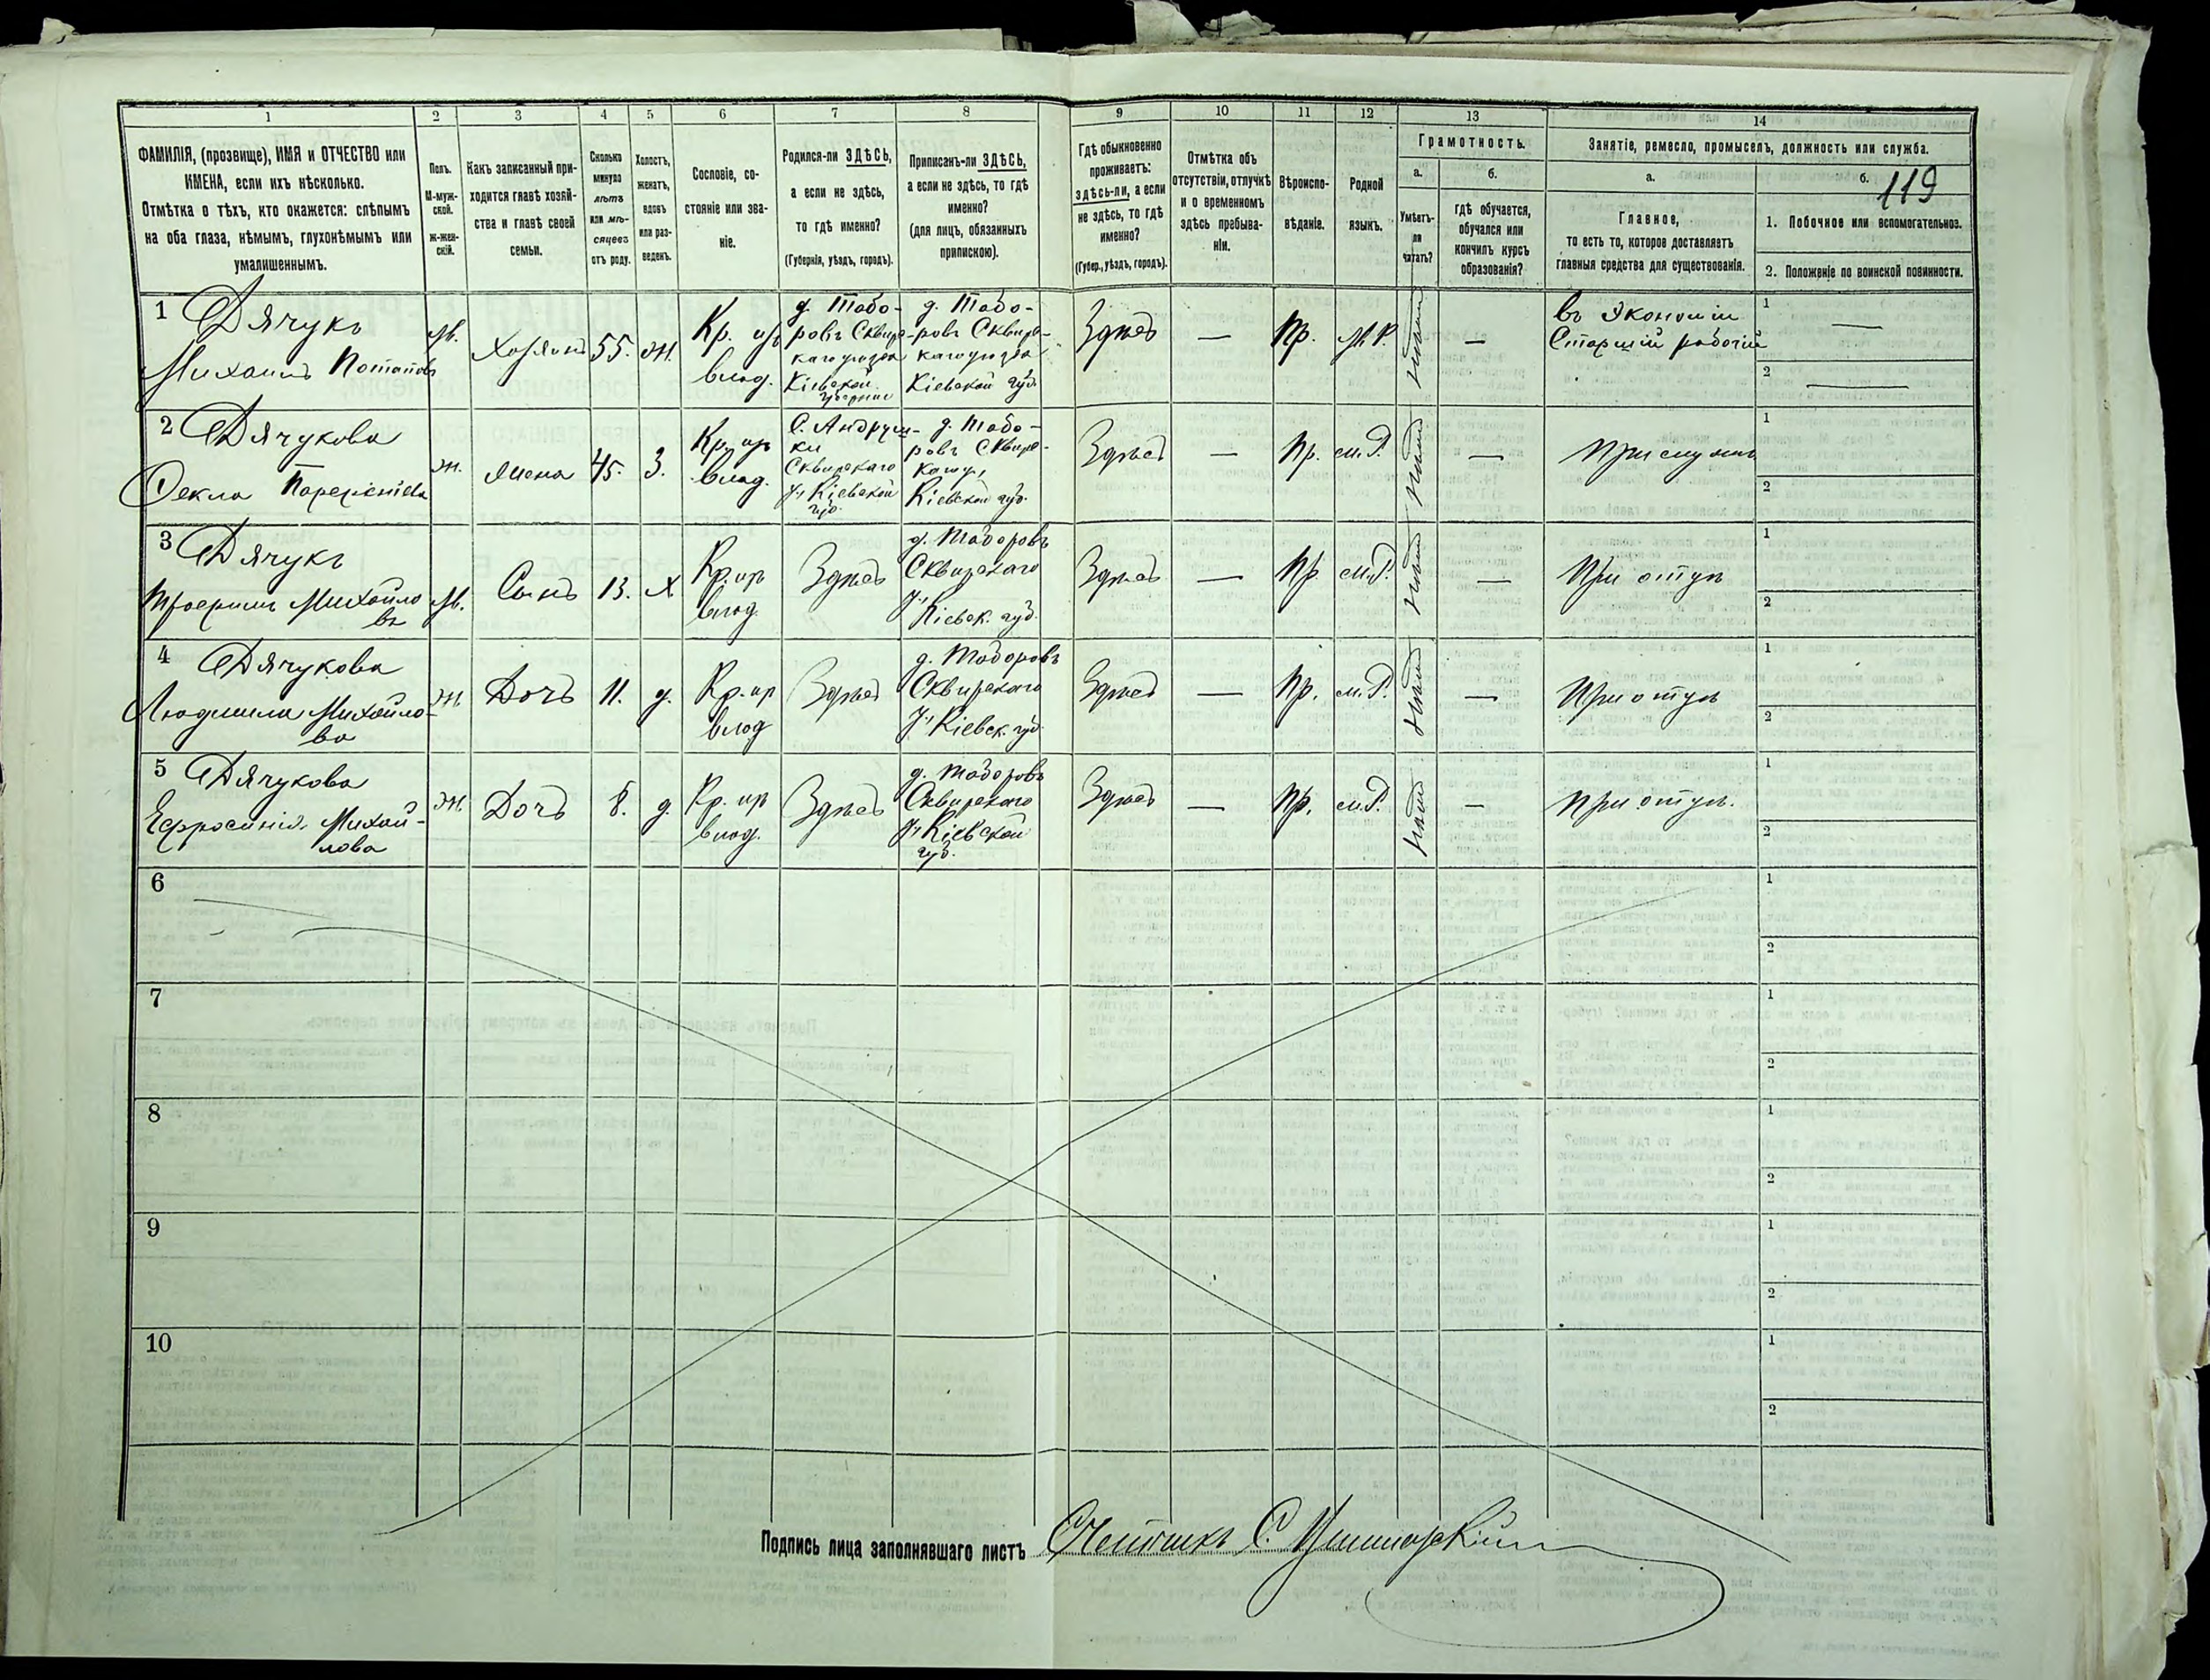 1
2
3
4
5
6
7
8
9
10
11
12
13
14
ФАМИЛІЯ, (прозвище), ИМЯ и ОТЧЕСТВО или
ИМЕНА, если ихъ нѣсколько.
Отмѣтка о тѣхъ, кто окажется: слѣпымъ
на оба глаза, нѣмымъ, глухонѣмымъ или
умалишеннымъ.
Полъ.
М-муж-
ской.
Ж-жен-
скій.
Какъ записанный при-
ходится главѣ хозяй-
ства и главѣ своей
семьи.
Сколько
минуло
лѣтъ
или мѣ-
сяцевъ
отъ роду.
Холостъ,
женатъ,
вдовъ
или раз-
веденъ.
Сословіе, со-
стояніе или зва-
ніе.
Родился-ли ЗДѢСЬ,
а если не здѣсь,
то гдѣ именно?
(Губернія, уѣздъ, городъ).
Приписанъ-ли ЗДѢСЬ,
а если не здѣсь, то гдѣ
именно?
(для лицъ, обязанныхъ
припискою).
Гдѣ обыкновенно
проживаетъ:
здѣсь-ли, а если
не здѣсь, то гдѣ
именно?
(Губер., уѣздъ, городъ).
Отмѣтка объ
отсутствіи, отлучкѣ
и о временномъ
здѣсь пребыва-
ніи.
Вѣроиспо-
вѣданіе.
Родной
языкъ.
Грамотность.
а.
Умѣетъ-
ли
читать?
б.
гдѣ обучается,
обучался или
кончилъ курсъ
образованія?
Занятіе, ремесло, промыселъ, должность или служба.
а.
Главное,
то есть то, которое доставляетъ
главныя средства для существованія.
б.
119
1. Побочное или вспомогательное.
2. Положеніе по воинской повинности.
1 Дячукъ
Михаилъ Потаповъ
М.
Хозяинъ
55.
Ж.
Кр. изъ
влад.
д. Табо-
ровъ Сквир-
скаго уѣзда
Кіевской
губерніи
д. Табо-
ровъ Сквир-
скаго уѣзда
Кіевской губ.
Здѣсь
—
Пр.
М.Р.
нѣтъ
—
въ Экономіи
Старшій рабочій
1
—
2
—
2 Дячукова
Ѳекла
Ж.
Жена
45.
З.
Кр. изъ
влад.
С. Андруш-
ки
Сквирскаго
у., Кіевской
губ.
д. Табо-
ровъ Сквир-
скаго у.,
Кіевской губ.
Здѣсь
—
Пр.
м.Р.
нѣтъ
—
При мужѣ
1
2
3 Дячукъ
Михайло
въ
М.
Сынъ
13.
Х
Кр. изъ
влад.
Здѣсь
д. Таборовъ
Сквирскаго
у., Кіевск. губ.
Здѣсь
—
Пр.
м.Р.
нѣтъ
—
При отцѣ
1
2
4 Дячукова
Людмила Михайло-
ва
Ж.
Дочь
11.
д.
Кр. изъ
влад
Здѣсь
д. Таборовъ
Сквирскаго
у., Кіевск. губ
Здѣсь
—
Пр.
м.Р.
нѣтъ
—
При отцѣ
1
2
5 Дячукова
Ефросинія Михай-
лова
Ж.
Дочь
8.
д.
Кр. изъ
влад.
Здѣсь
д. Таборовъ
Сквирскаго
у., Кіевской
губ.
Здѣсь
—
Пр.
м.Р.
нѣтъ
—
При отцѣ.
1
2
6
1
2
7
1
2
8
1
2
9
1
2
10
1
2
Подпись лица заполнявшаго листъ Счетчикъ С.